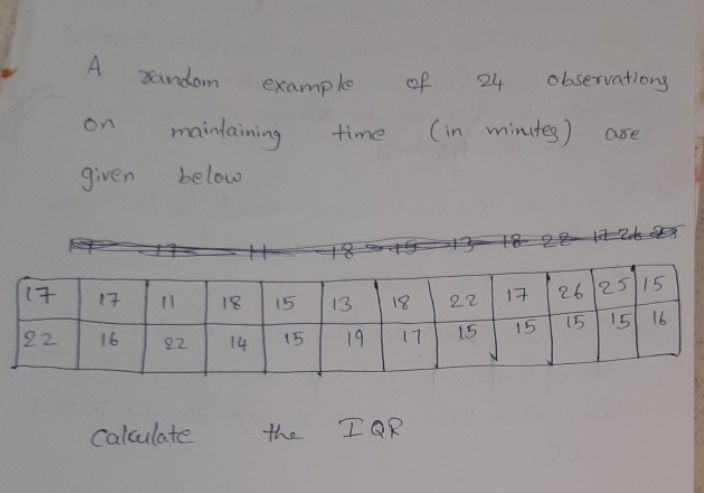 A random example of 24 observations
on maintaining time (in minutes) are
given below
17 17 11 18 15 13 18 22 17 26 25 15
22 16 22 14 15 19 17 15 15 15 15 16
Calculate the IQR